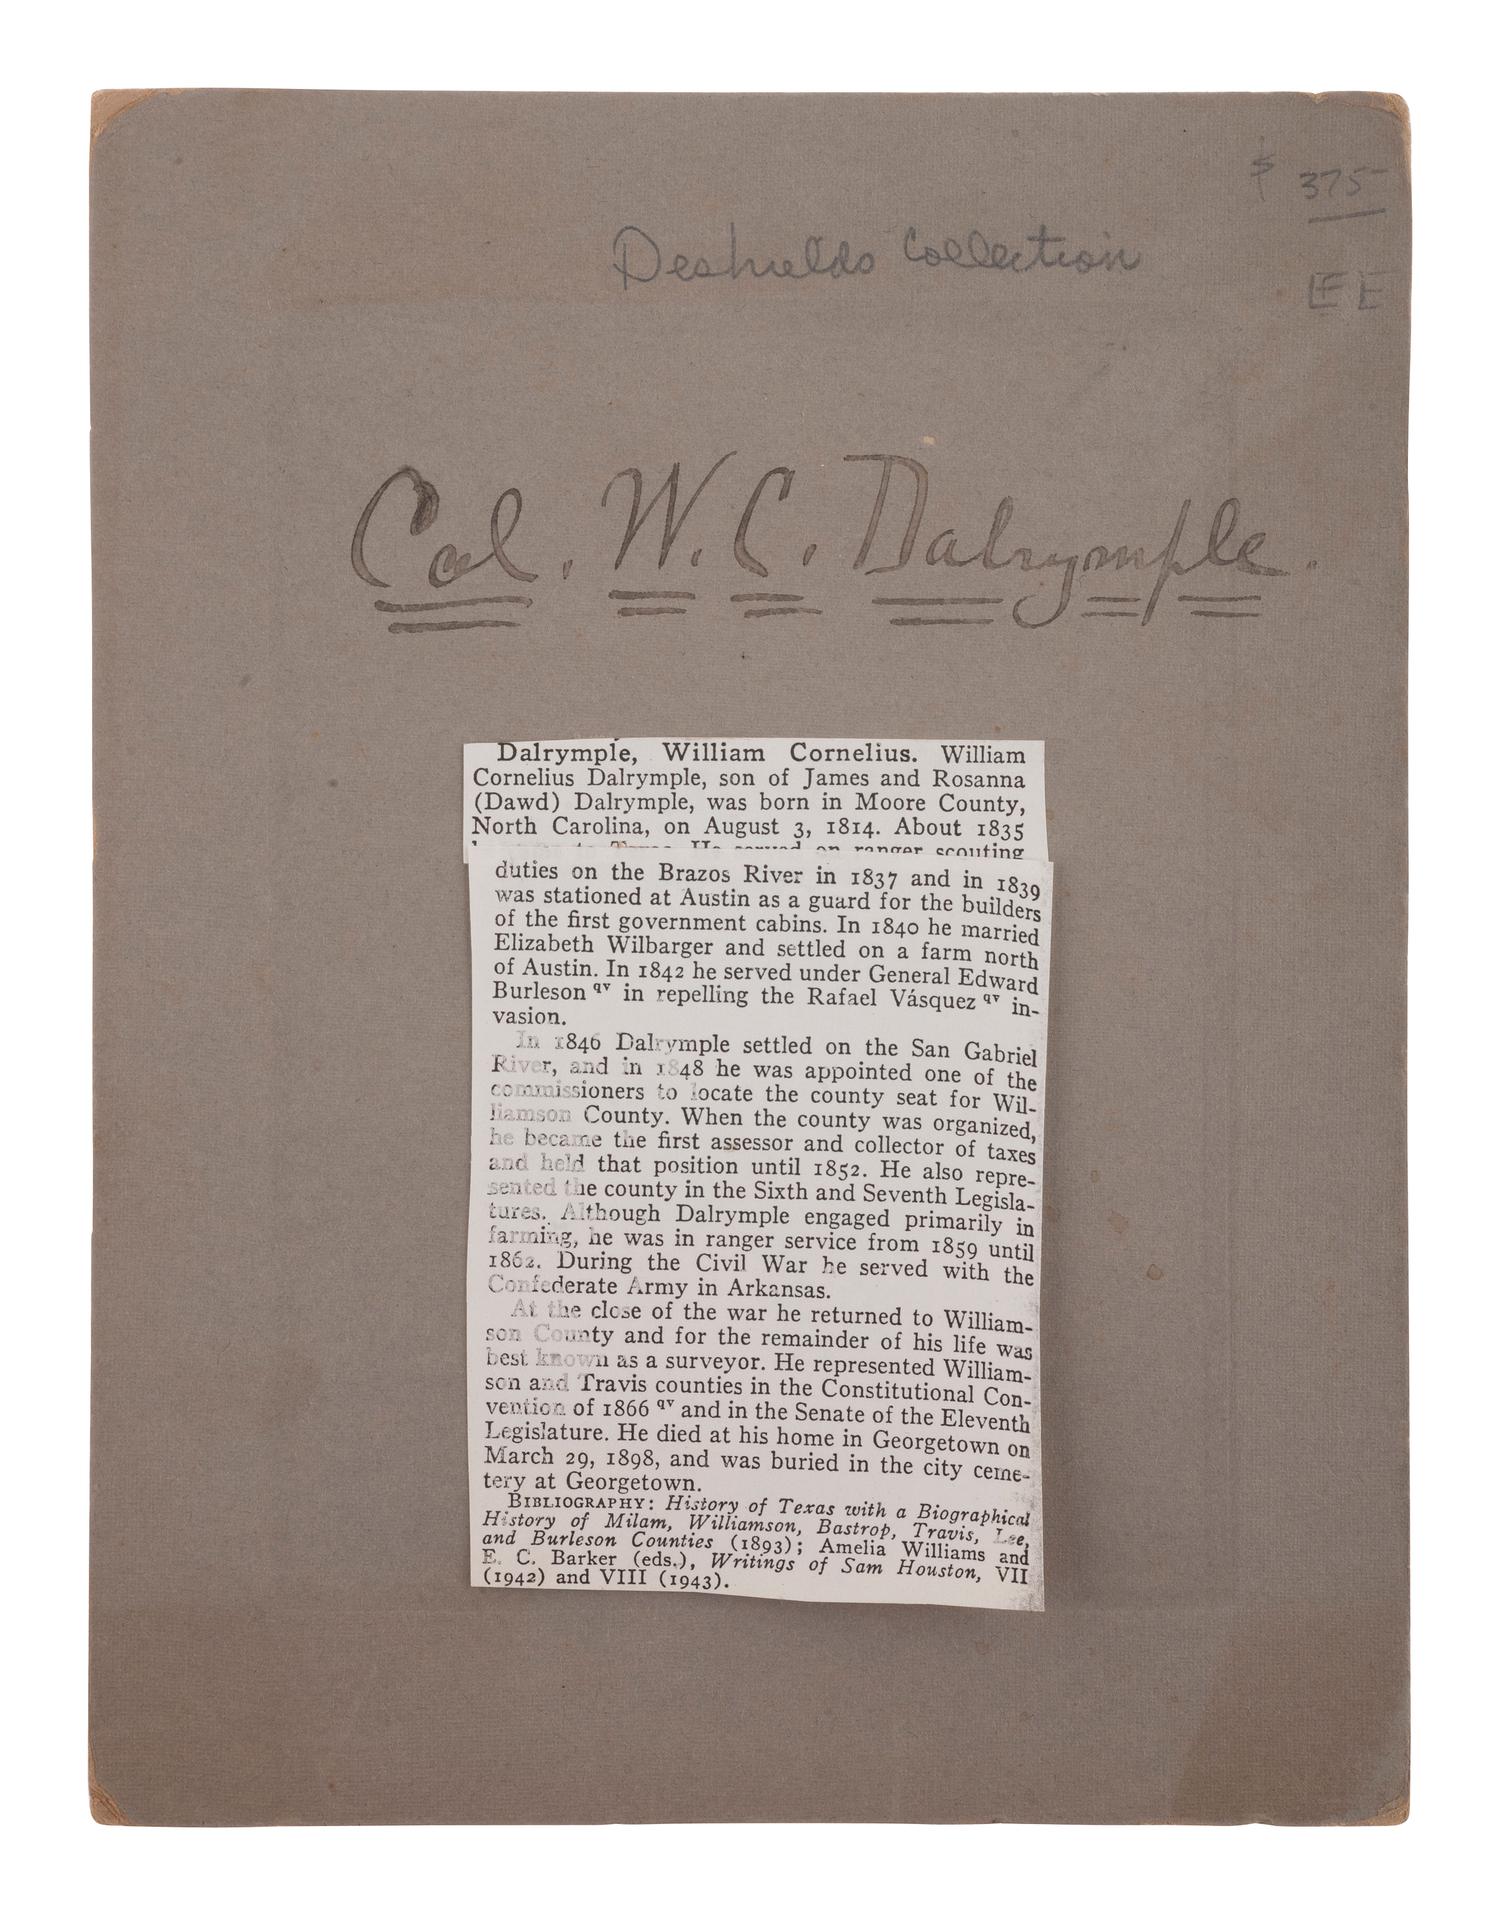 $ 375-
Deshields Collection
EE
Col. W. C. Dalrymple.
Dalrymple, William Cornelius. William
Cornelius Dalrymple, son of James and Rosanna
(Dawd) Dalrymple, was born in Moore County,
North Carolina, on August 3, 1814. About 1835
to Texas. He served on ranger scouting
duties on the Brazos River in 1837 and in 1839
was stationed at Austin as a guard for the builders
of the first government cabins. In 1840 he married
Elizabeth Wilbarger and settled on a farm north
of Austin. In 1842 he served under General Edward
Burleson qv in repelling the Rafael Vásquez qv in-
vasion.
In 1846 Dalrymple settled on the San Gabriel
River, and in 1848 he was appointed one of the
commissioners to locate the county seat for Wil-
liamson County. When the county was organized,
he became the first assessor and collector of taxes
and held that position until 1852. He also repre-
sented the county in the Sixth and Seventh Legisla-
tures. Although Dalrymple engaged primarily in
farming, he was in ranger service from 1859 until
1862. During the Civil War he served with the
Confederate Army in Arkansas.
At the close of the war he returned to William-
son County and for the remainder of his life was
best known as a surveyor. He represented William-
son and Travis counties in the Constitutional Con-
vention of 1866 qv and in the Senate of the Eleventh
Legislature. He died at his home in Georgetown on
March 29, 1898, and was buried in the city ceme-
tery at Georgetown.
BIBLIOGRAPHY: History of Texas with a Biographical
History of Milam, Williamson, Bastrop, Travis, Lee,
and Burleson Counties (1893); Amelia Williams and
E. C. Barker (eds.), Writings of Sam Houston, VII
(1942) and VIII (1943).